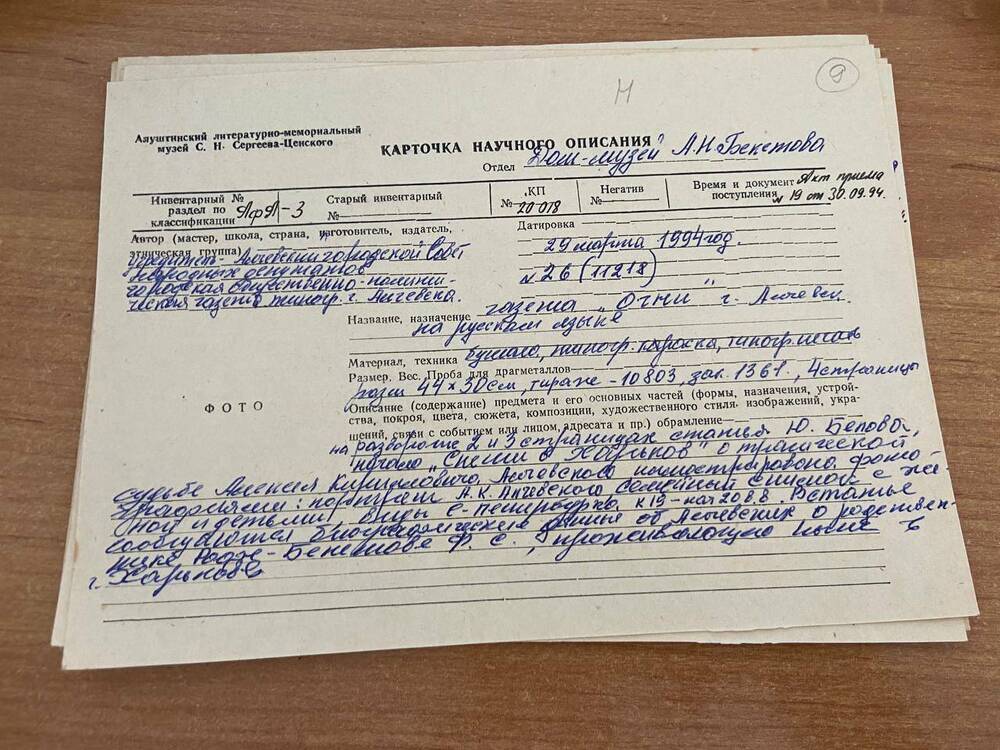 9
Н
Алуштинский литературно-мемориальный
музей С. Н. Сергеева-Ценского
КАРТОЧКА НАУЧНОГО ОПИСАНИЯ
Отдел "Дом-музей А.Н. Бекетова
Инвентарный № раздел по классификации АфЛ-3
Старый инвентарный №
КП № 20018
Негатив №
Время и документ поступления Акт приема № 19 от 30.09.94.
Автор (мастер, школа, страна, изготовитель, издатель,
этническая группа)
учредитель - Алчевский городской Совет
народных депутатов
городская общественно-полити-
ческая газета типогр. г. Алчевска.
Датировка
29 марта 1994 год.
№ 26 (11218)
Название, назначение газета "Огни" г. Алчевск.
на русском языке
Материал, техника бумага, типогр. краска, типогр. печать
Размер. Вес. Проба для драгметаллов
разм 44 х 30 см, тираж - 10803, зак. 1361, 4 страницы
ФОТО
Описание (содержание) предмета и его основных частей (формы, назначения, устрой-
ства, покроя, цвета, сюжета, композиции, художественного стиля изображений, укра-
шений, связи с событием или лицом, адресата и пр.) обрамление
на развороте 2 и 3 страницах статья Ю. Белова,
начало о трагической
судьбе Алексея Кирилловича Алчевского иллюстрирована фото-
графиями: портрет А.К. Алчевского семейный снимок с же-
ной и детьми, виды С-Петербурга к 19 - нач 20 вв. В статье
сообщаются биографические данные об Алчевских о родствен-
нице Ф. С., проживающей ныне в
г. Харькове